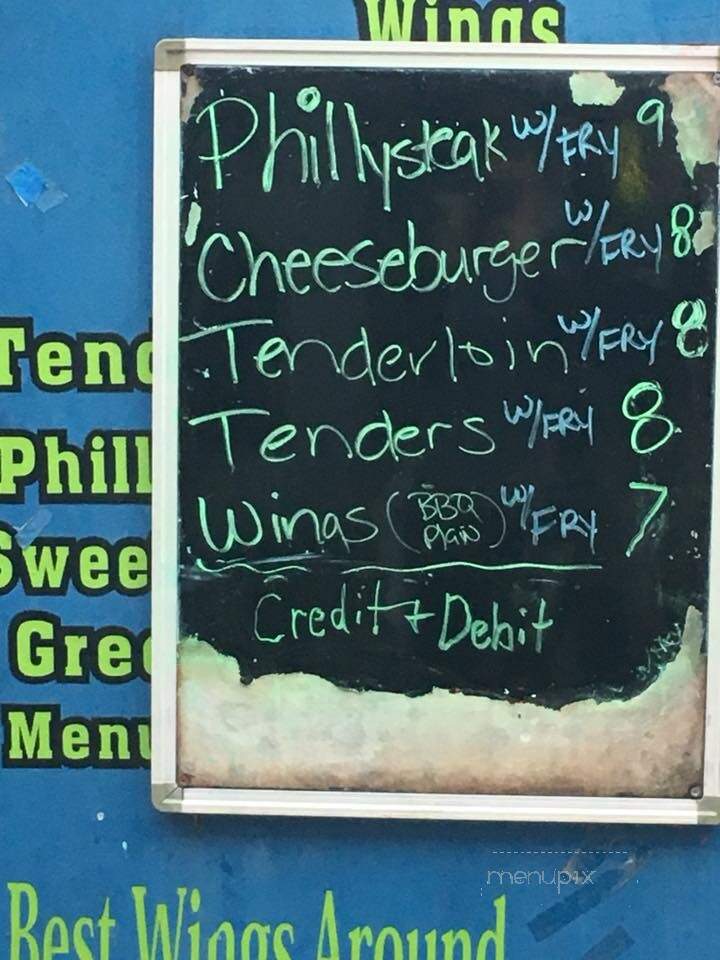 Wings
Phillysteak w/FRY 9
Cheeseburger w/FRY 8
Tenderloin w/FRY 8
Tenders w/FRY 8
Wings (BBQ Plain) w/FRY 7
Credit + Debit
Tend
Phill
Swee
Gree
Menu
Best Wings Around
menupix